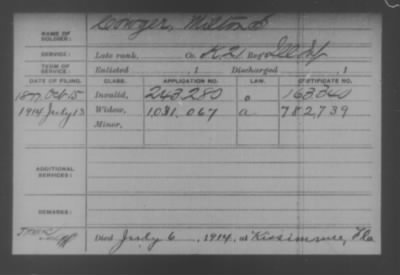 NAME OF SOLDIER: Cowger, Milton
SERVICE: Late rank, Co. K, 21 Reg't Ill Inf
TERM OF SERVICE: Enlisted , 1 Discharged , 1
DATE OF FILING. CLASS. APPLICATION NO. LAW. CERTIFICATE NO.
1877 Oct 15 Invalid, 243,280 163,340
1914 July 13 Widow, 1,031,067 a 782,739
Minor,
ADDITIONAL SERVICES:
REMARKS:
Died July 6, 1914, at Kissimmee, Fla